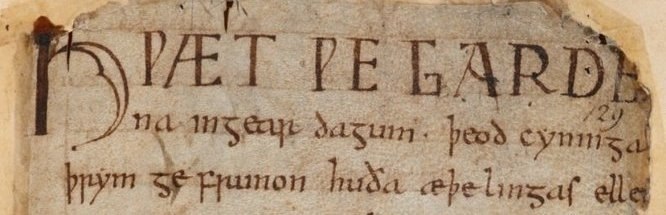 HǷÆT ǷE GARDE
na ingear dagum. þeod cyninga
þrym ge frunon huða æþelingas elle
129